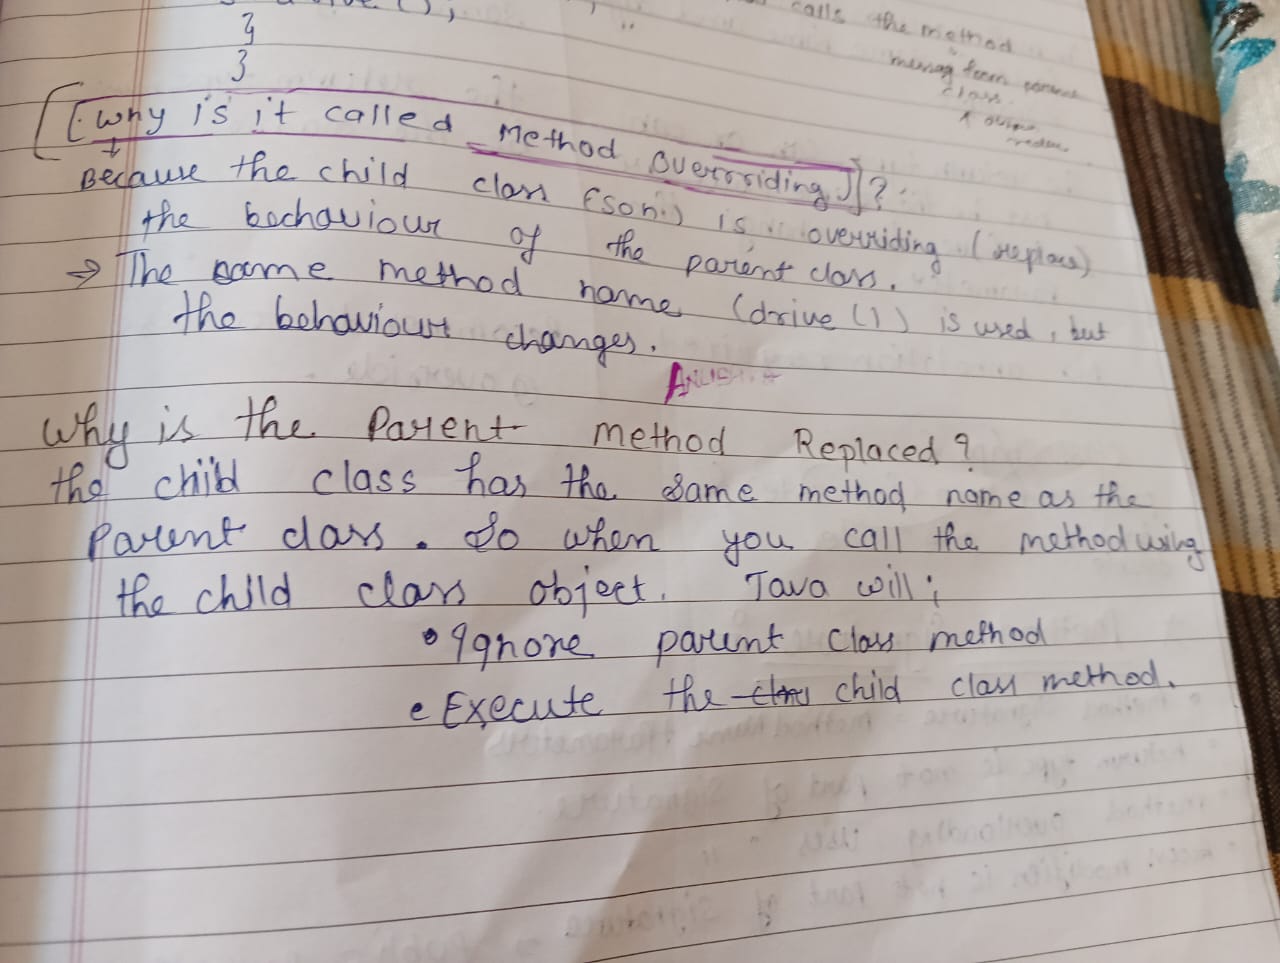 }
}
calls the method
class
[[why is it called Method Overriding]]?
Because the child class (son) is overriding (replace)
the bechaviour of the parent class.
⇒ The same method name (drive()) is used, but
the behaviour changes.
Why is the Parent method Replaced?
the child class has the same method name as the
Parent class. So when you call the method using
the child class object. Java will;
• Ignore parent class method
• Execute the class child class method.